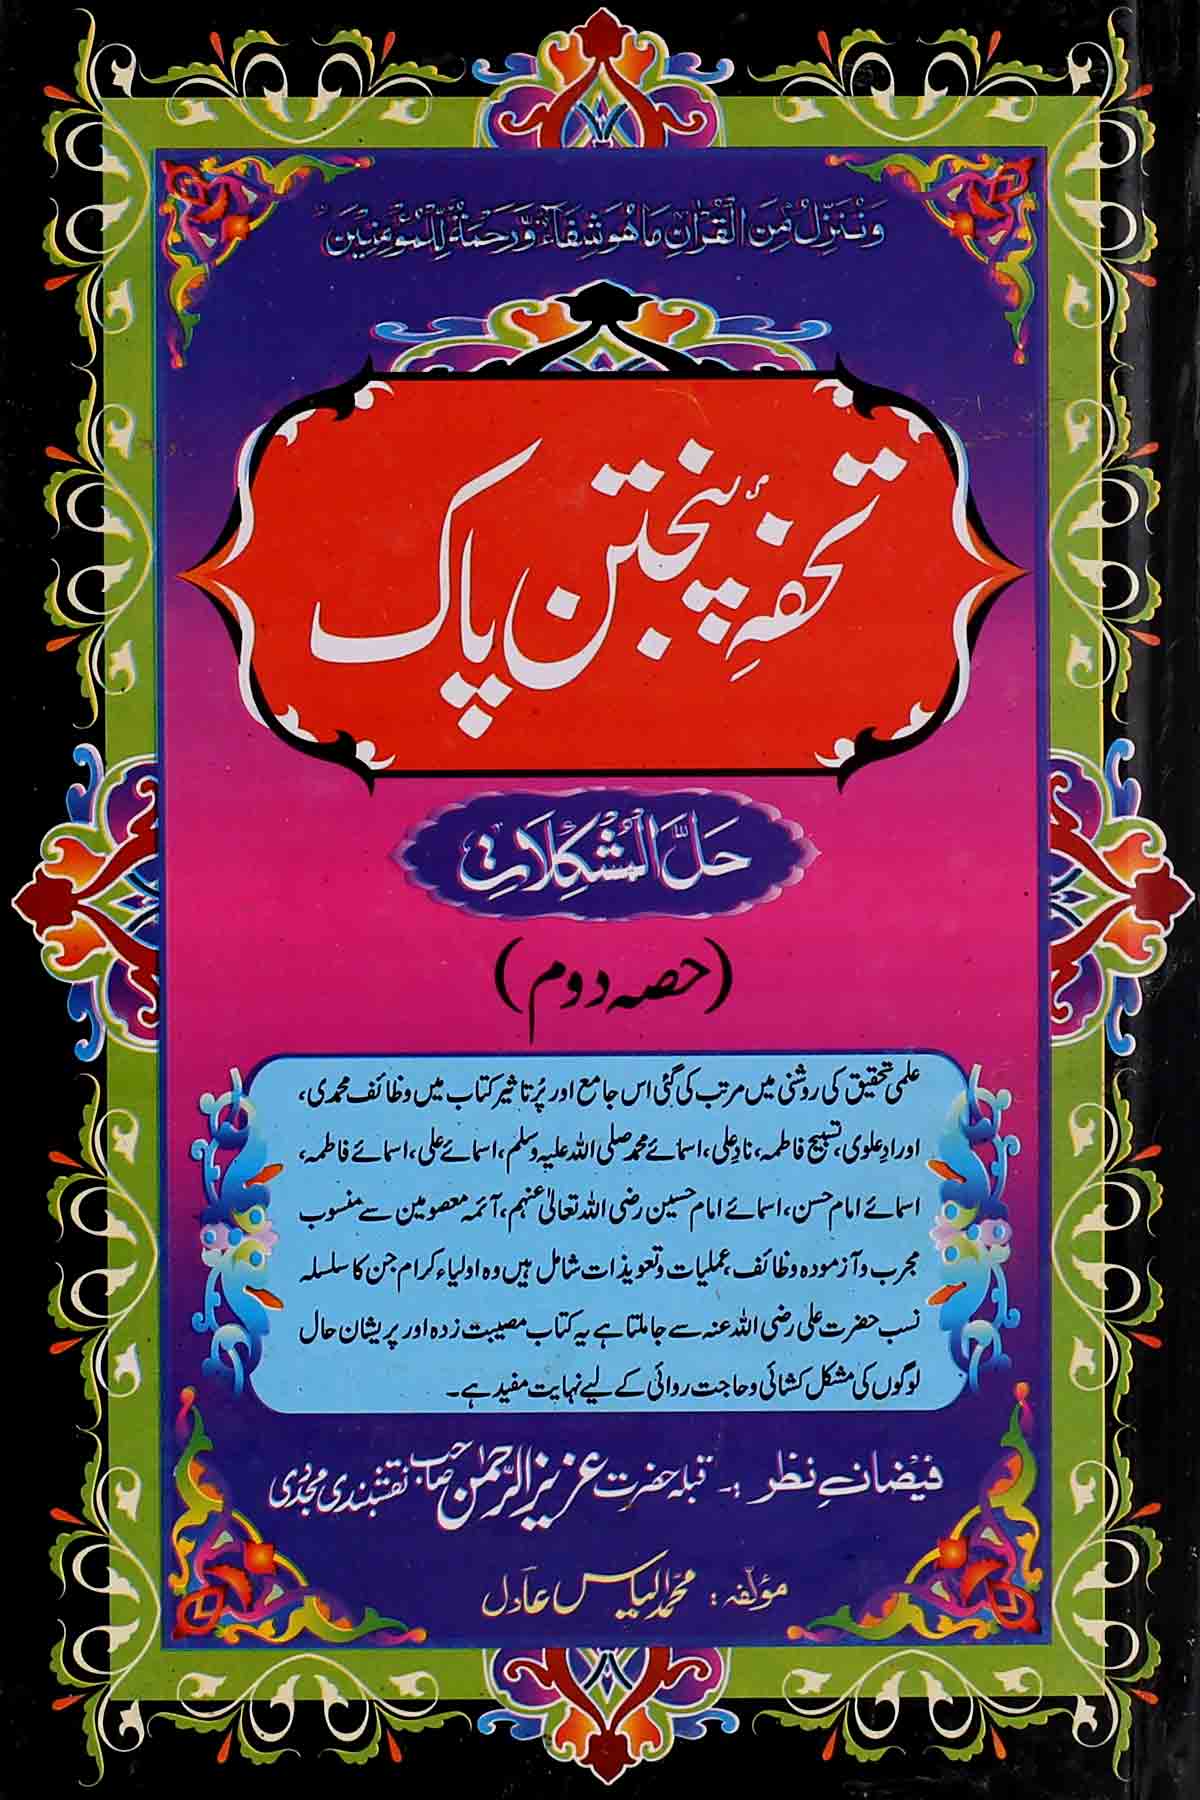 وَنُنَزِّلُ مِنَ الْقُرْاٰنِ مَا هُوَ شِفَآءٌ وَّرَحْمَةٌ لِّلْمُؤْمِنِيْنَ
تحفۂ پنجتن پاک
حَلُّ المُشکِلَات
(حصہ دوم)
علمی تحقیق کی روشنی میں مرتب کی گئی اس جامع اور پُرتاثیر کتاب میں وظائف محمدی،
اورادِ علوی، تسبیح فاطمہ، نادِ علی، اسمائے محمد صلی اللہ علیہ وسلم، اسمائے علی، اسمائے فاطمہ،
اسمائے امام حسن، اسمائے امام حسین رضی اللہ تعالیٰ عنہم، آئمہ معصومین سے منسوب
مجرب و آزمودہ وظائف، عملیات و تعویذات شامل ہیں وہ اولیاء کرام جن کا سلسلہ
نسب حضرت علی رضی اللہ عنہ سے جا ملتا ہے یہ کتاب مصیبت زدہ اور پریشان حال
لوگوں کی مشکل کشائی و حاجت روائی کے لیے نہایت مفید ہے۔
فیضانِ نظر :۔ قبلہ حضرت عزیز الرحمٰن صاحب نقشبندی مجددی
مؤلفہ : محمد الیاس عادل